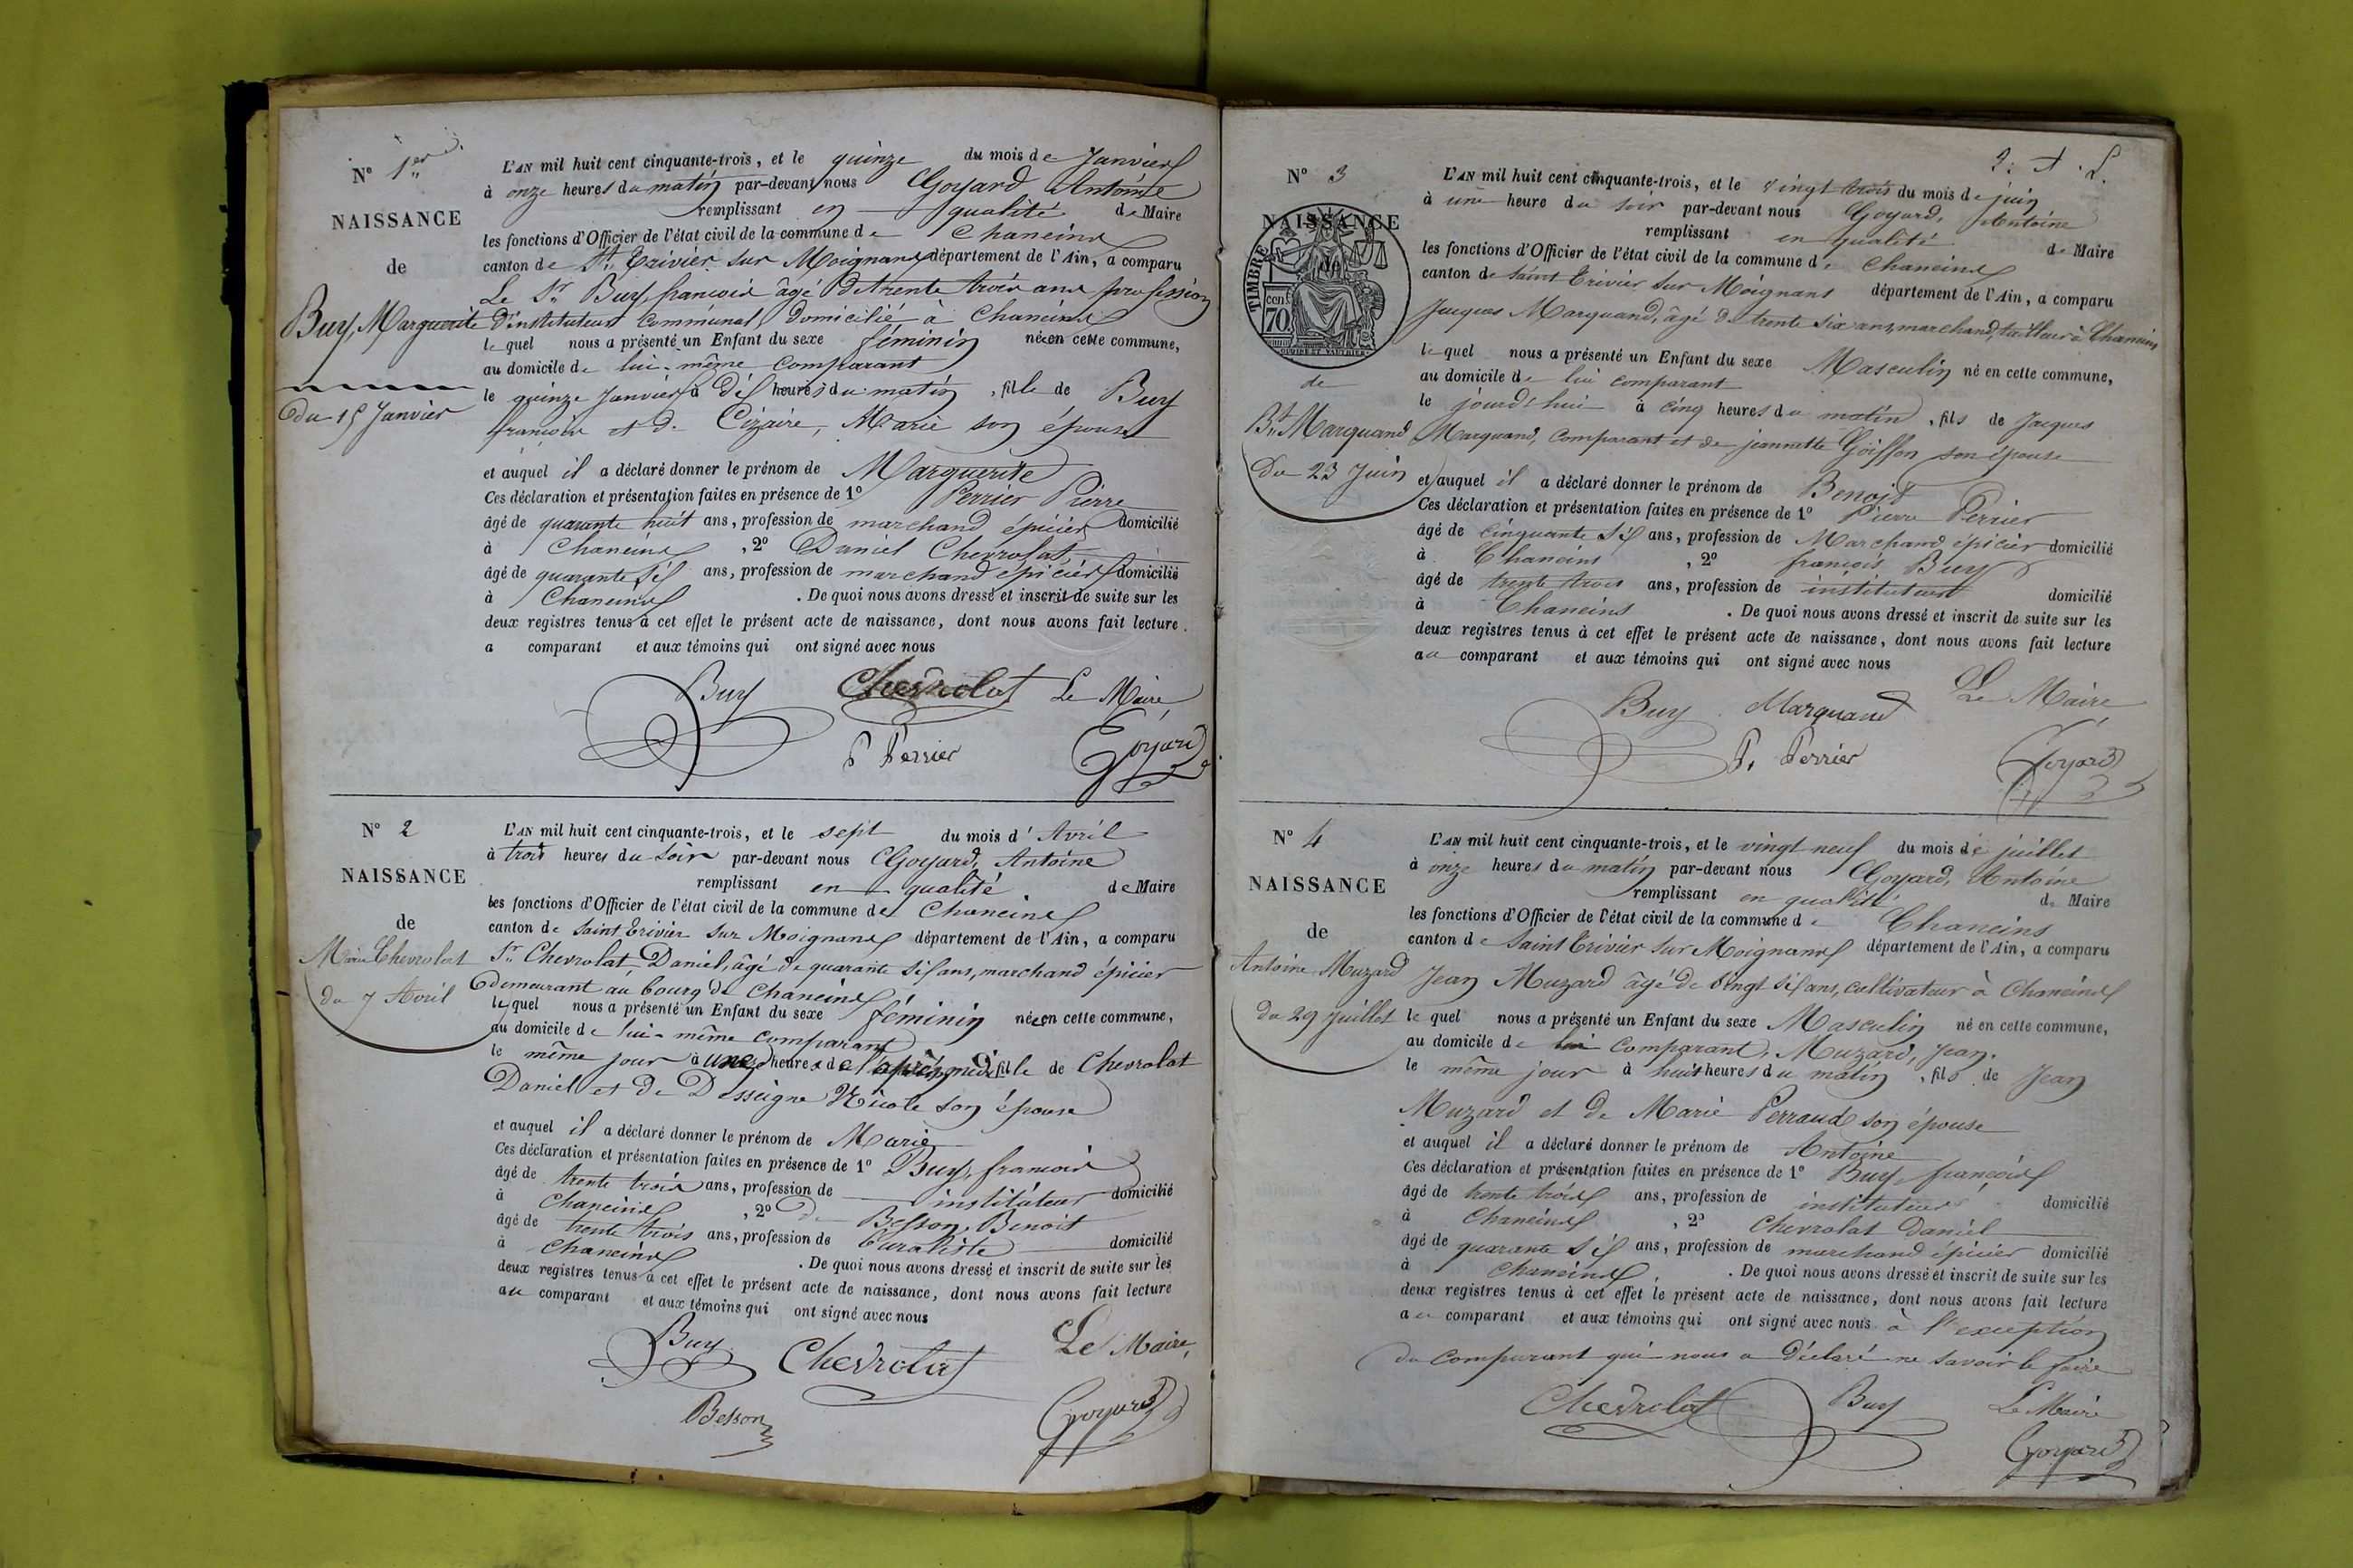 N° 1er
NAISSANCE
de
Buy, Marguerite
du 15 Janvier
L'AN mil huit cent cinquante-trois, et le quinze du mois de Janvier
à onze heures du matin par-devant nous Goyard Antoine
remplissant en qualité de Maire
les fonctions d'Officier de l'état civil de la commune de Chaneins
canton de St Trivier sur Moignans département de l'Ain, a comparu
Le Sr Buy, françois âgé de trente trois ans profession
d'instituteur communal, domicilié à Chaneins
lequel nous a présenté un Enfant du sexe féminin née en cette commune,
au domicile de lui-même comparant
le quinze Janvier à dix heures du matin, fille de Buy
françois et de Cizaire, Marie son épouse
et auquel il a déclaré donner le prénom de Marguerite
Ces déclaration et présentation faites en présence de 1° Perrier Pierre
âgé de quarante huit ans, profession de marchand épicier domicilié
à Chaneins, 2° Daniel Chevrolat,
âgé de quarante six ans, profession de marchand épicier domicilié
à Chaneins. De quoi nous avons dressé et inscrit de suite sur les
deux registres tenus à cet effet le présent acte de naissance, dont nous avons fait lecture
a comparant et aux témoins qui ont signé avec nous
Buy Chevrolat Le Maire,
P Perrier Goyard
N° 2
NAISSANCE
de
Marie Chevrolat
du 7 Avril
L'AN mil huit cent cinquante-trois, et le sept du mois d'Avril
à trois heures du soir par-devant nous Goyard, Antoine
remplissant en qualité de Maire
les fonctions d'Officier de l'état civil de la commune de Chaneins
canton de saint trivier sur Moignans département de l'Ain, a comparu
Sr Chevrolat, Daniel, âgé de quarante six ans, marchand épicier
demeurant au bourg de Chaneins
lequel nous a présenté un Enfant du sexe féminin née en cette commune,
au domicile de lui-même comparant
le même jour à une heure de l'après midi fille de Chevrolat
Daniel et de Desseigne Nicole son épouse
et auquel il a déclaré donner le prénom de Marie
Ces déclaration et présentation faites en présence de 1° Buy, françois
âgé de trente trois ans, profession de instituteur domicilié
à Chaneins, 2° Besson, Benoit
âgé de trente trois ans, profession de buraliste domicilié
à Chaneins. De quoi nous avons dressé et inscrit de suite sur les
deux registres tenus à cet effet le présent acte de naissance, dont nous avons fait lecture
au comparant et aux témoins qui ont signé avec nous
Buy Chevrolat Le Maire,
Besson Goyard
N° 3
NAISSANCE
TIMBRE
cent.
70
de
Bt Marquand
Du 23 Juin
L'AN mil huit cent cinquante-trois, et le vingt trois du mois de juin
à une heure du soir par-devant nous Goyard, Antoine
remplissant en qualité de Maire
les fonctions d'Officier de l'état civil de la commune de Chaneins
canton de saint trivier sur Moignans département de l'Ain, a comparu
Jacques Marquand, âgé de trente six ans, marchand, tailleur à Chaneins
lequel nous a présenté un Enfant du sexe Masculin né en cette commune,
au domicile de lui comparant
le jourd'hui à cinq heures du matin, fils de Jacques
Marquand, comparant et de jeannette Goiffon son épouse
et auquel il a déclaré donner le prénom de Benoit
Ces déclaration et présentation faites en présence de 1° Pierre Perrier
âgé de cinquante six ans, profession de Marchand épicier domicilié
à Chaneins, 2° françois Buy
âgé de trente trois ans, profession de instituteur domicilié
à Chaneins. De quoi nous avons dressé et inscrit de suite sur les
deux registres tenus à cet effet le présent acte de naissance, dont nous avons fait lecture
au comparant et aux témoins qui ont signé avec nous
Buy Marquand Le Maire
P. Perrier Goyard
N° 4
NAISSANCE
de
Antoine Muzard
du 29 Juillet
L'AN mil huit cent cinquante-trois, et le vingt neuf du mois de juillet
à onze heures du matin par-devant nous Goyard, Antoine
remplissant en qualité de Maire
les fonctions d'Officier de l'état civil de la commune de Chaneins
canton de Saint trivier sur Moignans département de l'Ain, a comparu
Jean Muzard âgé de vingt six ans, cultivateur à Chaneins
lequel nous a présenté un Enfant du sexe Masculin né en cette commune,
au domicile de comparant, Muzard, Jean.
le même jour à huit heures du matin, fils de Jean
Muzard et de Marie Perraud son épouse
et auquel il a déclaré donner le prénom de Antoine
Ces déclaration et présentation faites en présence de 1° Buy, françois
âgé de trente trois ans, profession de instituteur domicilié
à Chaneins, 2° Chevrolat Daniel
âgé de quarante six ans, profession de marchand épicier domicilié
à Chaneins. De quoi nous avons dressé et inscrit de suite sur les
deux registres tenus à cet effet le présent acte de naissance, dont nous avons fait lecture
au comparant et aux témoins qui ont signé avec nous à l'exception
du comparant qui nous a déclaré ne savoir le faire
Chevrolat Buy Le Maire
Goyard